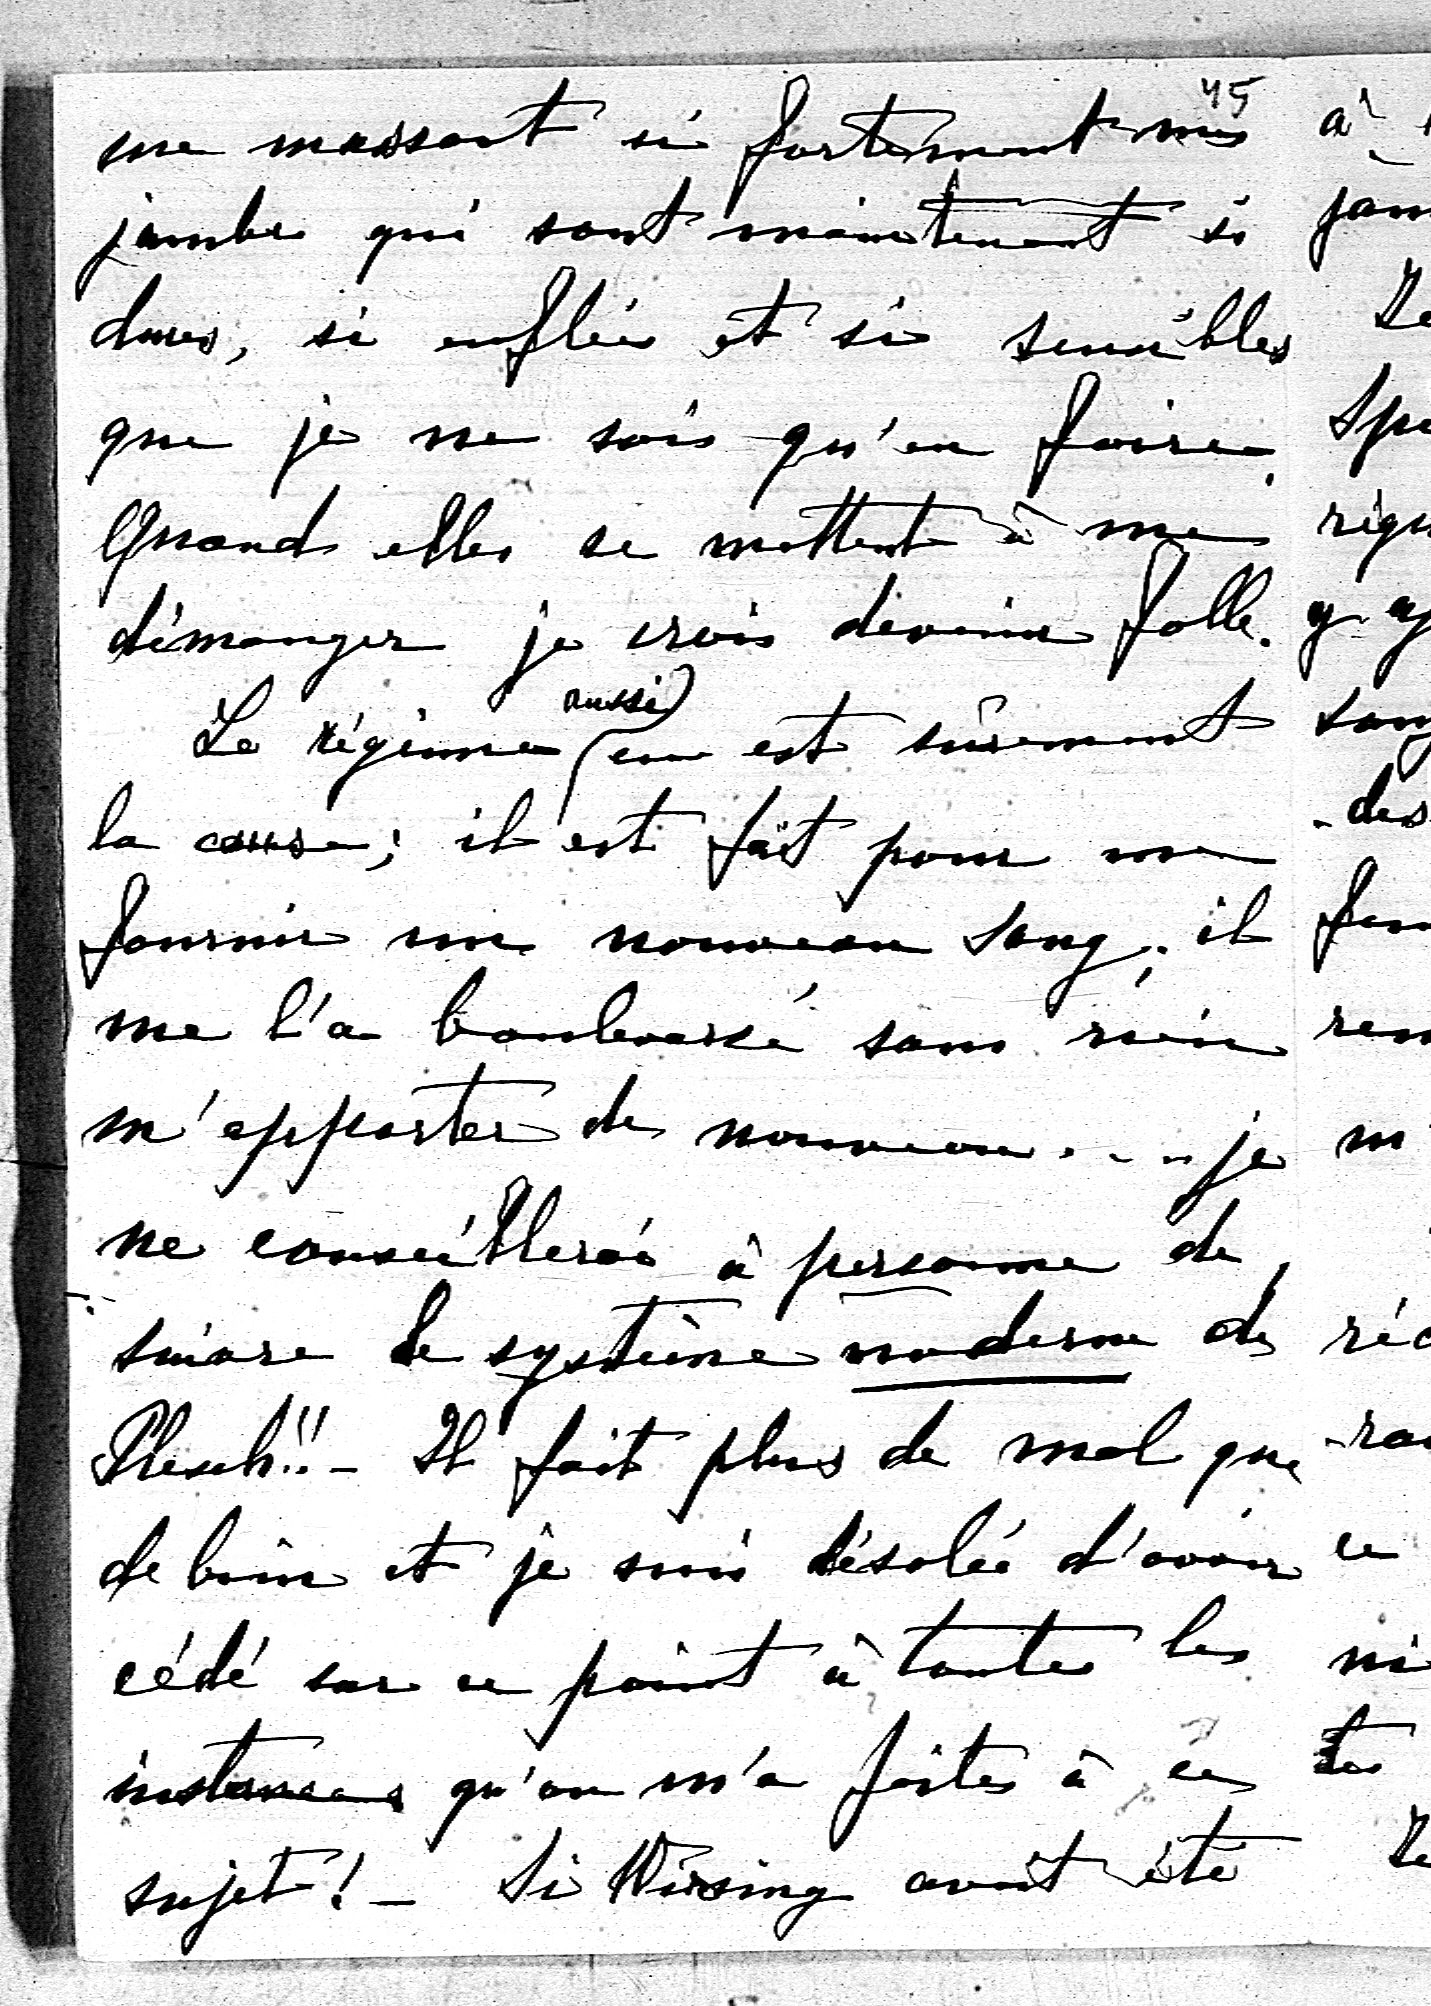 45
me massant si fortement mes
jambes qui sont maintenant si
dures, si enflées et si sensibles
que je ne sais qu'en faire.
Quand elles se mettent à me
démanger je crois devenir folle.
Le régime aussi en est sûrement
la cause; il est fait pour me
fournir un nouveau sang; il
me l'a bouleversé sans rien
m'apporter de nouveau.... je
ne conseillerai à personne de
suivre le système moderne de
Plesch!! - Il fait plus de mal que
de bien et je suis désolée d'avoir
cédé sur ce point à toutes les
instances qu'on m'a faites à ce
sujet! - Si Wirsing avait été